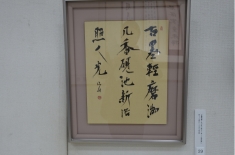 古墨輕磨滿
几香硯池新浴
照人光